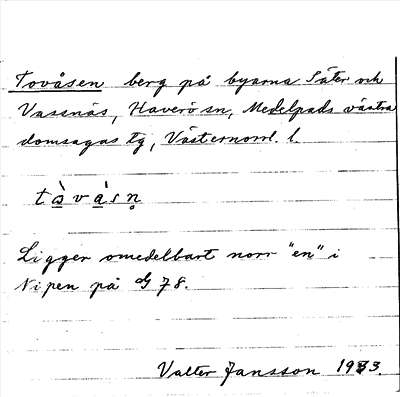 Tovåsen berg på byarna Säter och
Vassnäs, Haverö sn, Medelpads västra
domsagas tg, Västernorrl. l.
tòvàsn̥
Ligger omedelbart norr "en" i
Nipen på dG 78.
Valter Jansson 1933.